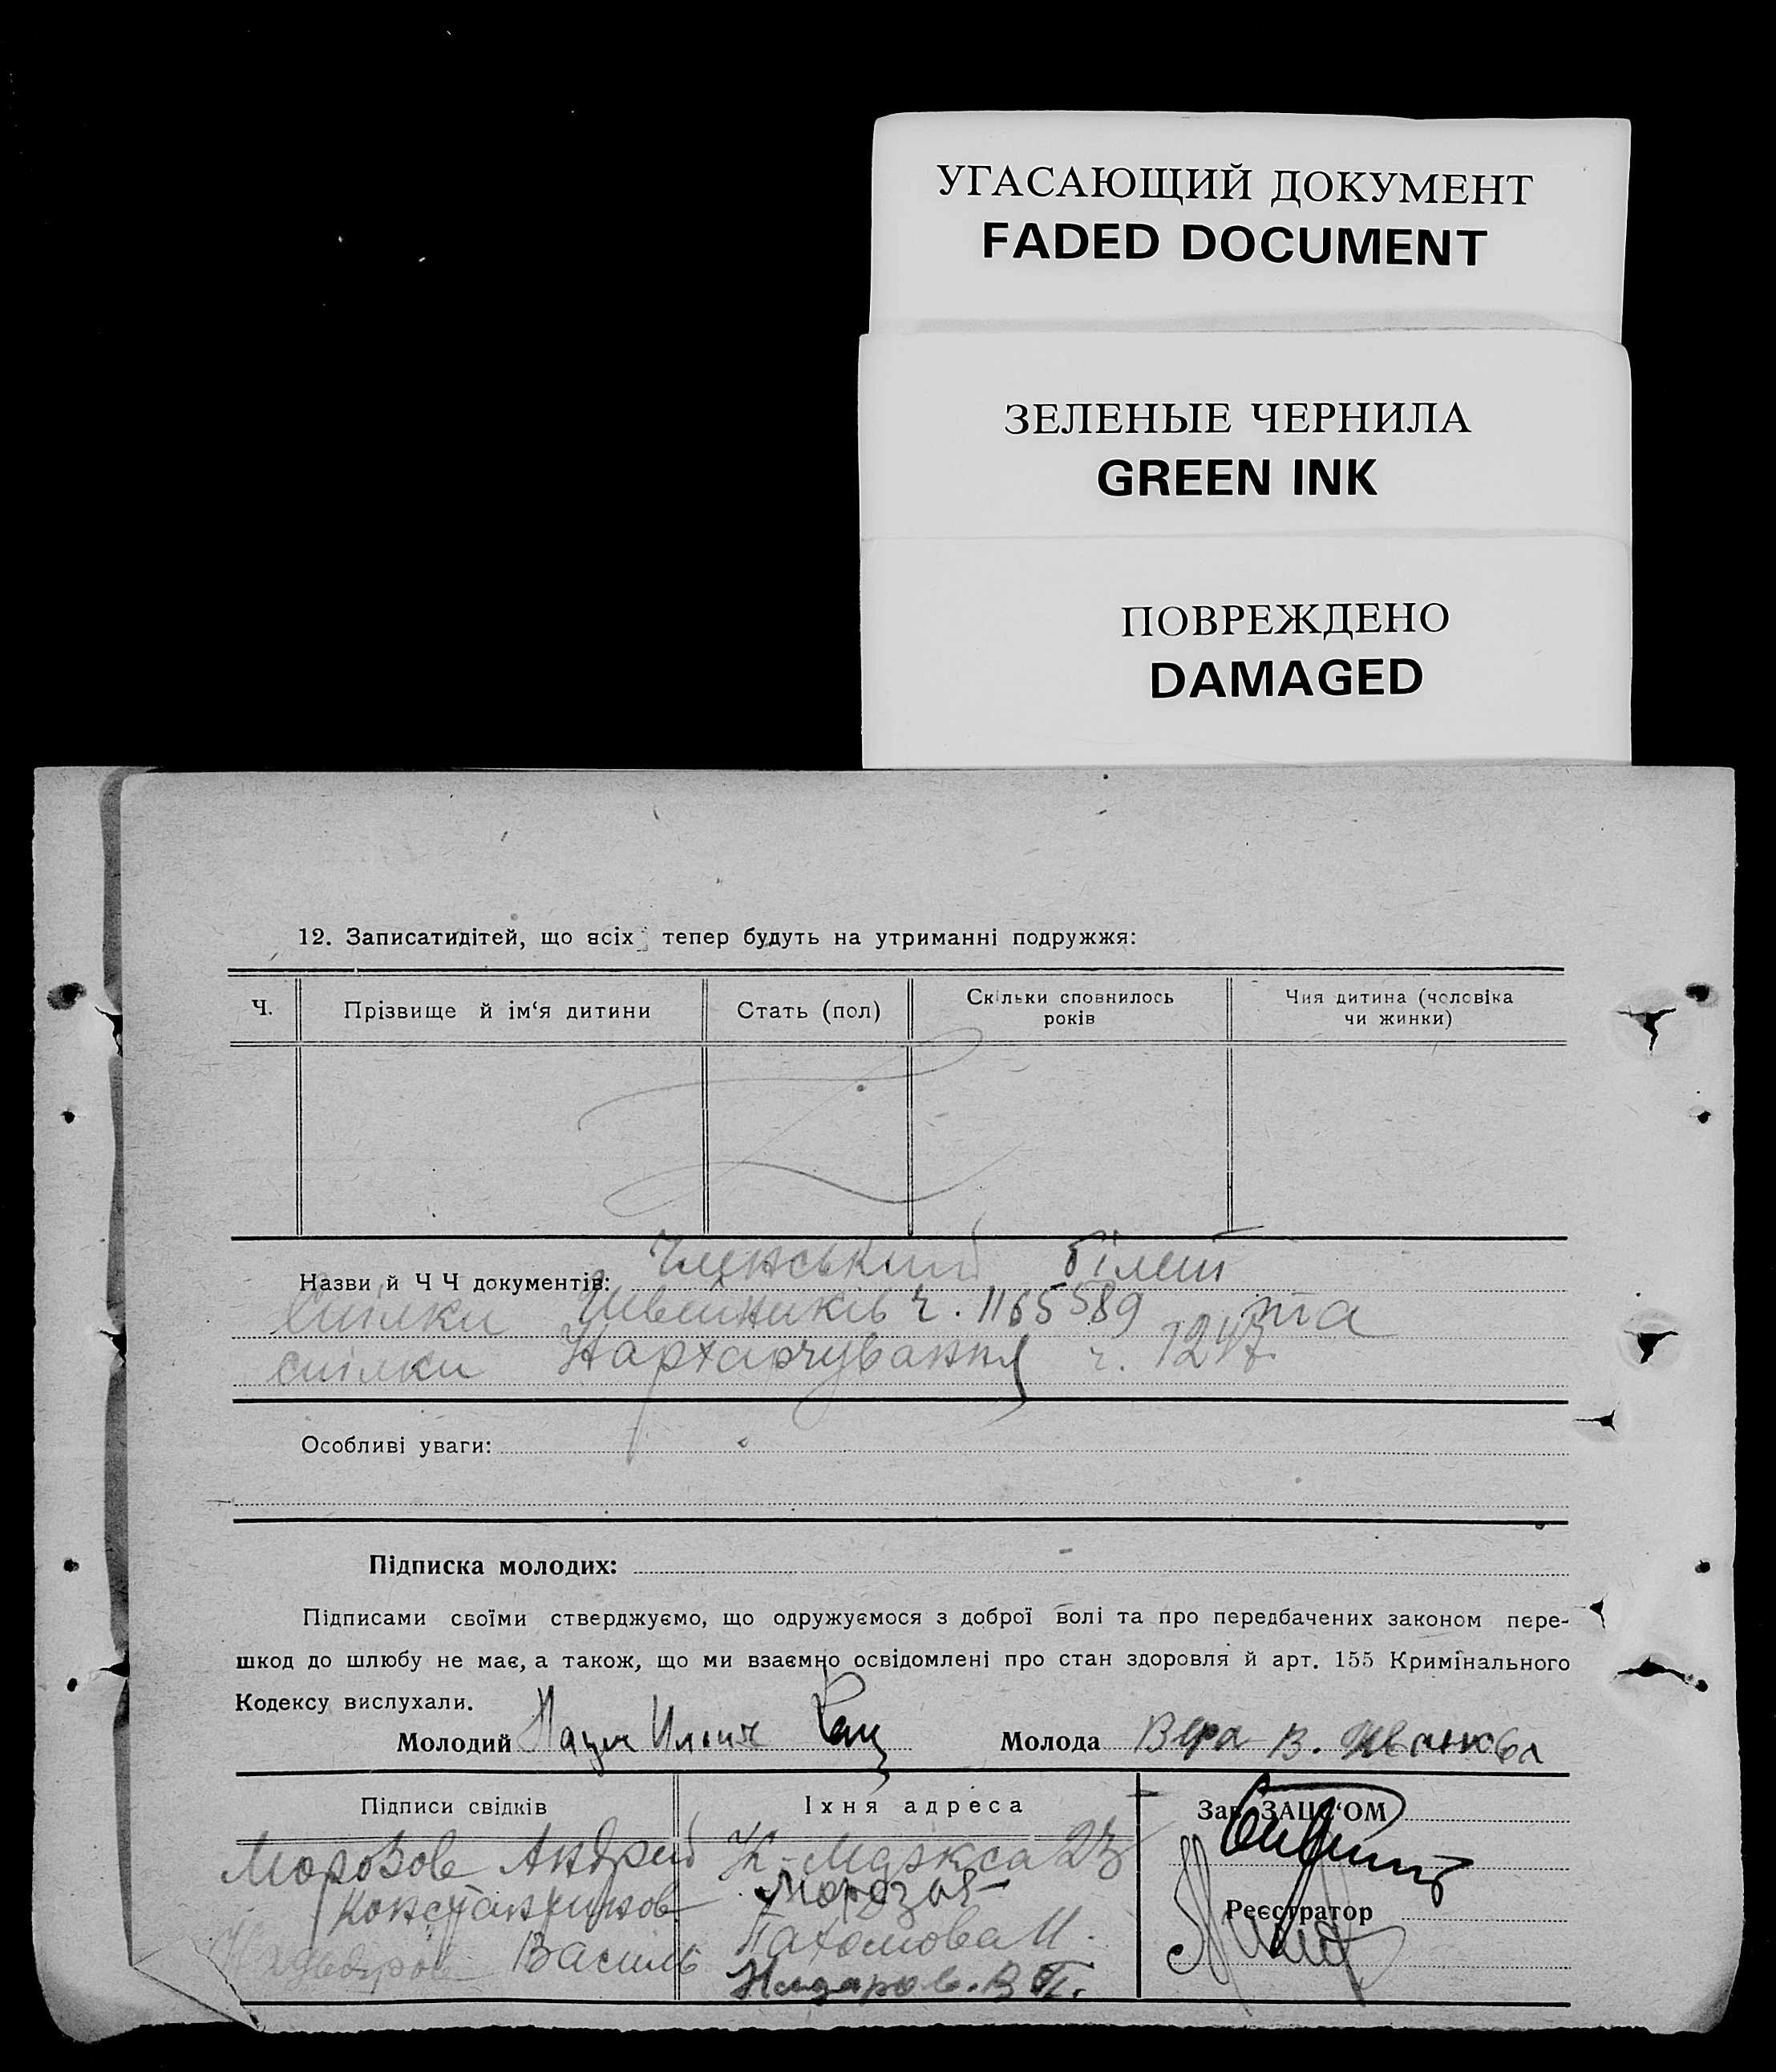 УГАСАЮЩИЙ ДОКУМЕНТ
FADED DOCUMENT
ЗЕЛЕНЫЕ ЧЕРНИЛА
GREEN INK
ПОВРЕЖДЕНО
DAMAGED
12. Записатидітей, що всіх тепер будуть на утриманні подружжя:
Ч.
Прізвище й ім‘я дитини
Стать (пол)
Скільки сповнилось
років
Чия дитина (чоловіка
чи жинки)
Членський білет
Назви й Ч Ч документів:
Спілки Швейників ч. 1165589 та
спілки Нархарчування ч. 1247
Особливі уваги:
Підписка молодих:
Підписами своїми стверджуємо, що одружуємося з доброї волі та про передбачених законом пере-
шкод до шлюбу не має, а також, що ми взаємно освідомлені про стан здоровля й арт. 155 Кримінального
Кодексу вислухали.
Молодий Ильич Кац
Молода Вера В. Иванова
Підписи свідків
Їхня адреса
Зав. ЗАЦС‘ОМ
Морозов Андрей К-Маркса 23
Константинов Морозов
Реєстратор
Василь Пахомова 11.